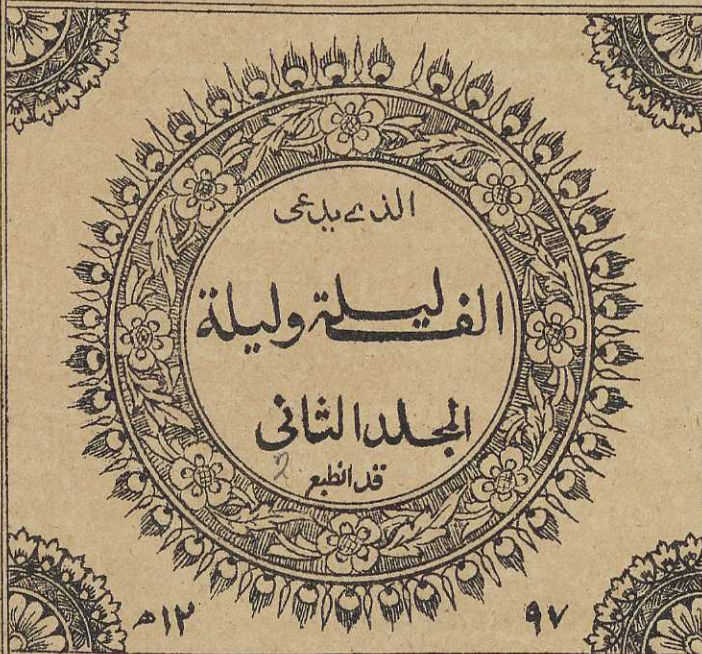 الذے يدعى
الف ليلة وليلة
المجلد الثانى
2
قد انطبع
١٢ھ ٩٧